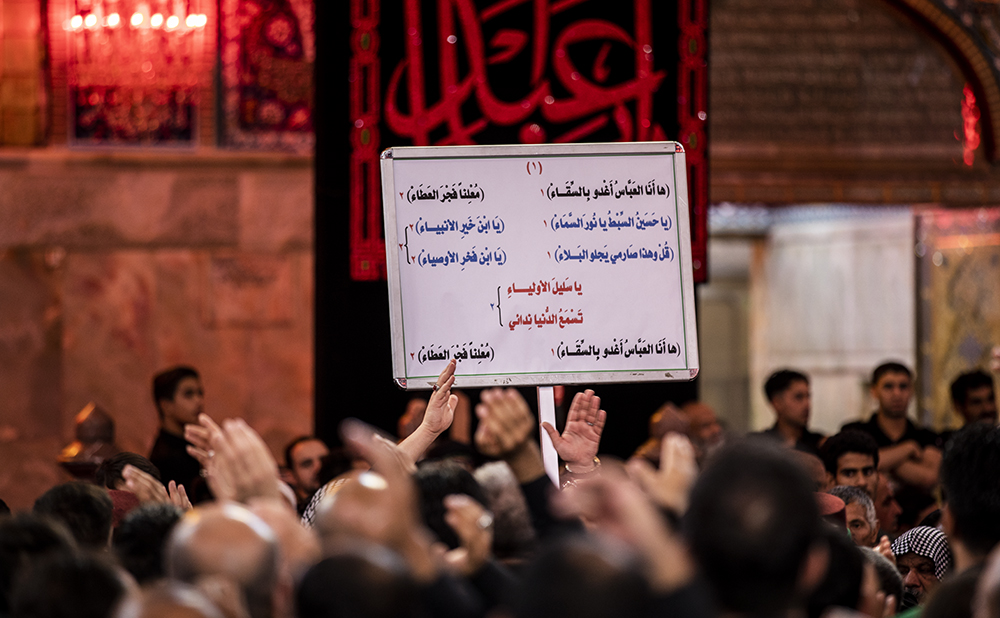 (١)
(ها أَنَا العَبَّاسُ أَغْدو بِالسِّقَـاءْ) ١ (مُعْلِناً فَجْرَ العَطَاءْ) ٢
(يا حُسَيْنُ السِّبْطُ يا نُورَ السَّمَاءْ) ١ (يَا ابْنَ خَيرِ الانبيـاءْ) ٢
(قُلْ وهذا صارمي يَجلو البَـلاءْ) ١ (يَا ابْن فَخرِ الأوصياءْ) ٢
٢
يا سَليلَ الأوليـــاءِ
تَسْمَعُ الدُّنيا نِدائي
٢
(ها أَنَا العَبَّاسُ أَغْدو بِالسِّقَـاءْ) ١ (مُعْلِناً فَجْرَ العَطَاءْ) ٢